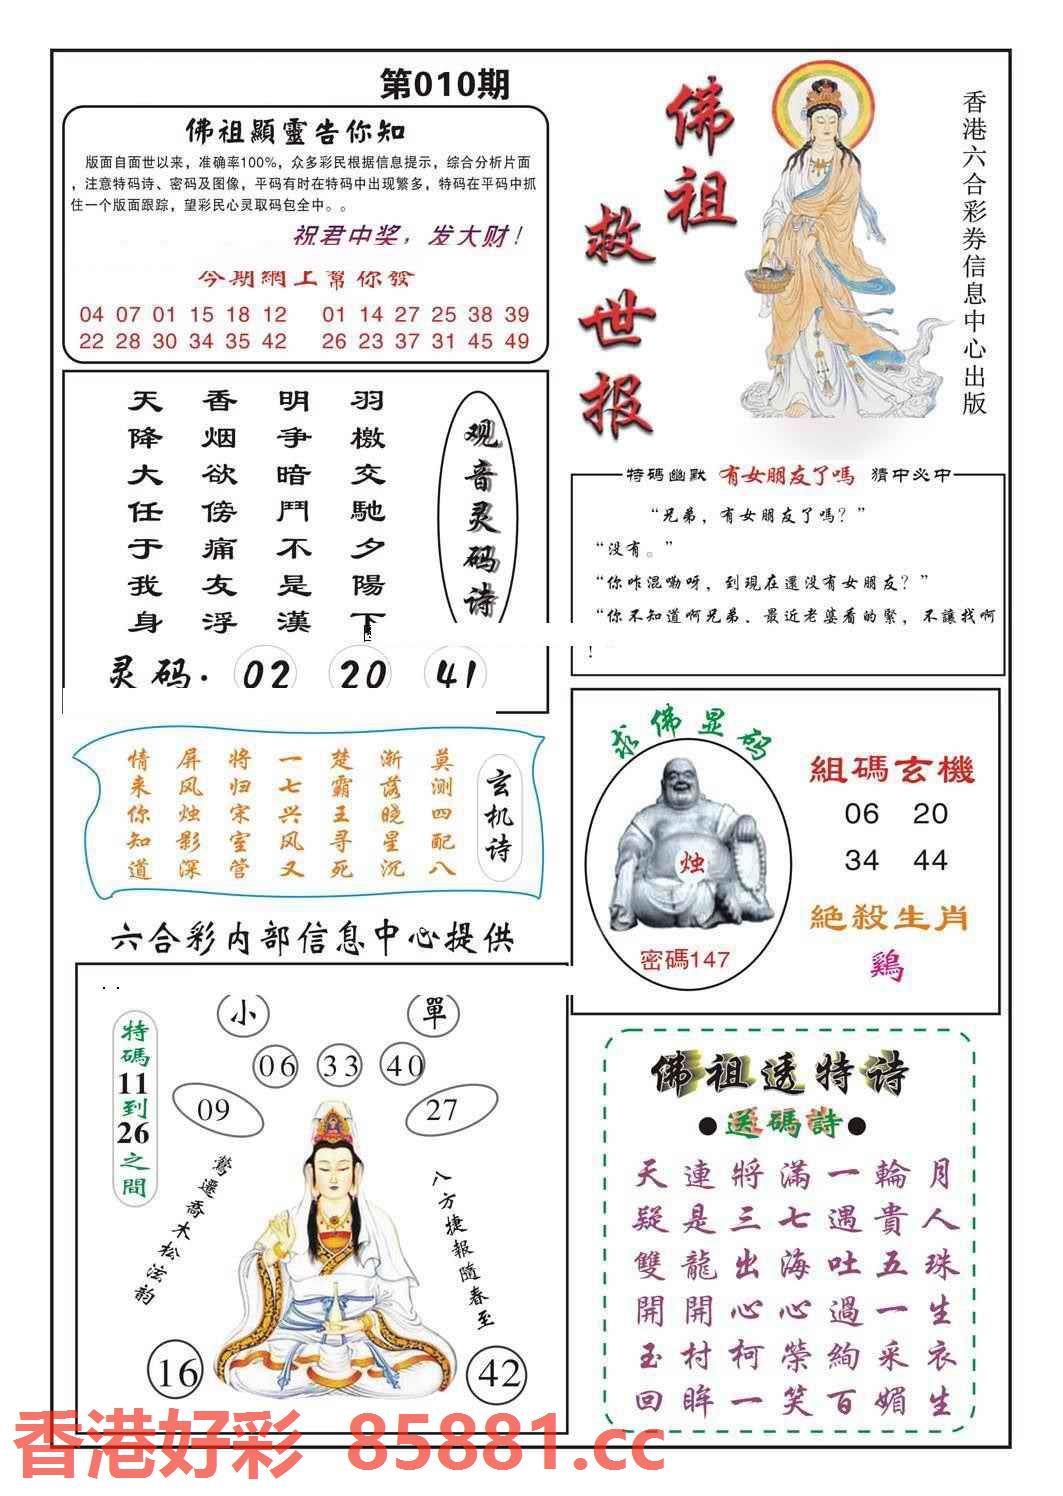 第010期
佛祖顯靈告你知
版面自面世以来，准确率100%，众多彩民根据信息提示，综合分析片面
，注意特码诗、密码及图像，平码有时在特码中出现繁多，特码在平码中抓
住一个版面跟踪，望彩民心灵取码包全中。。
祝君中奖，发大财！
今期網上幫你發
04 07 01 15 18 12 01 14 27 25 38 39
22 28 30 34 35 42 26 23 37 31 45 49
佛祖
救世报
香港六合彩券信息中心出版
观音灵码诗
羽檄交馳夕陽下
明争暗鬥不是漢
香烟欲傍痛友浮
天降大任于我身
灵码：02 20 41
特碼幽默 有女朋友了嗎 猜中必中
“兄弟，有女朋友了嗎？”
“没有。”
“你咋混嘞呀，到現在還没有女朋友？”
“你不知道啊兄弟、最近老婆看的緊，不讓找啊
！
玄机诗
莫测四配八
渐落晓星沉
楚霸王寻死
一七兴风又
将归宋室管
屏风烛影深
情来你知道
求佛显码
烛
密碼147
組碼玄機
06 20
34 44
絕殺生肖
鷄
六合彩内部信息中心提供
小 單
06 33 40
09 27
特碼11到26之間
鶯遷喬木松泫韵
八方捷報隨春至
16 42
佛祖透特诗
●送碼詩●
天連將滿一輪月
疑是三七遇貴人
雙龍出海吐五珠
開開心心過一生
玉村柯榮絢采衣
回眸一笑百媚生
香港好彩 85881.cc